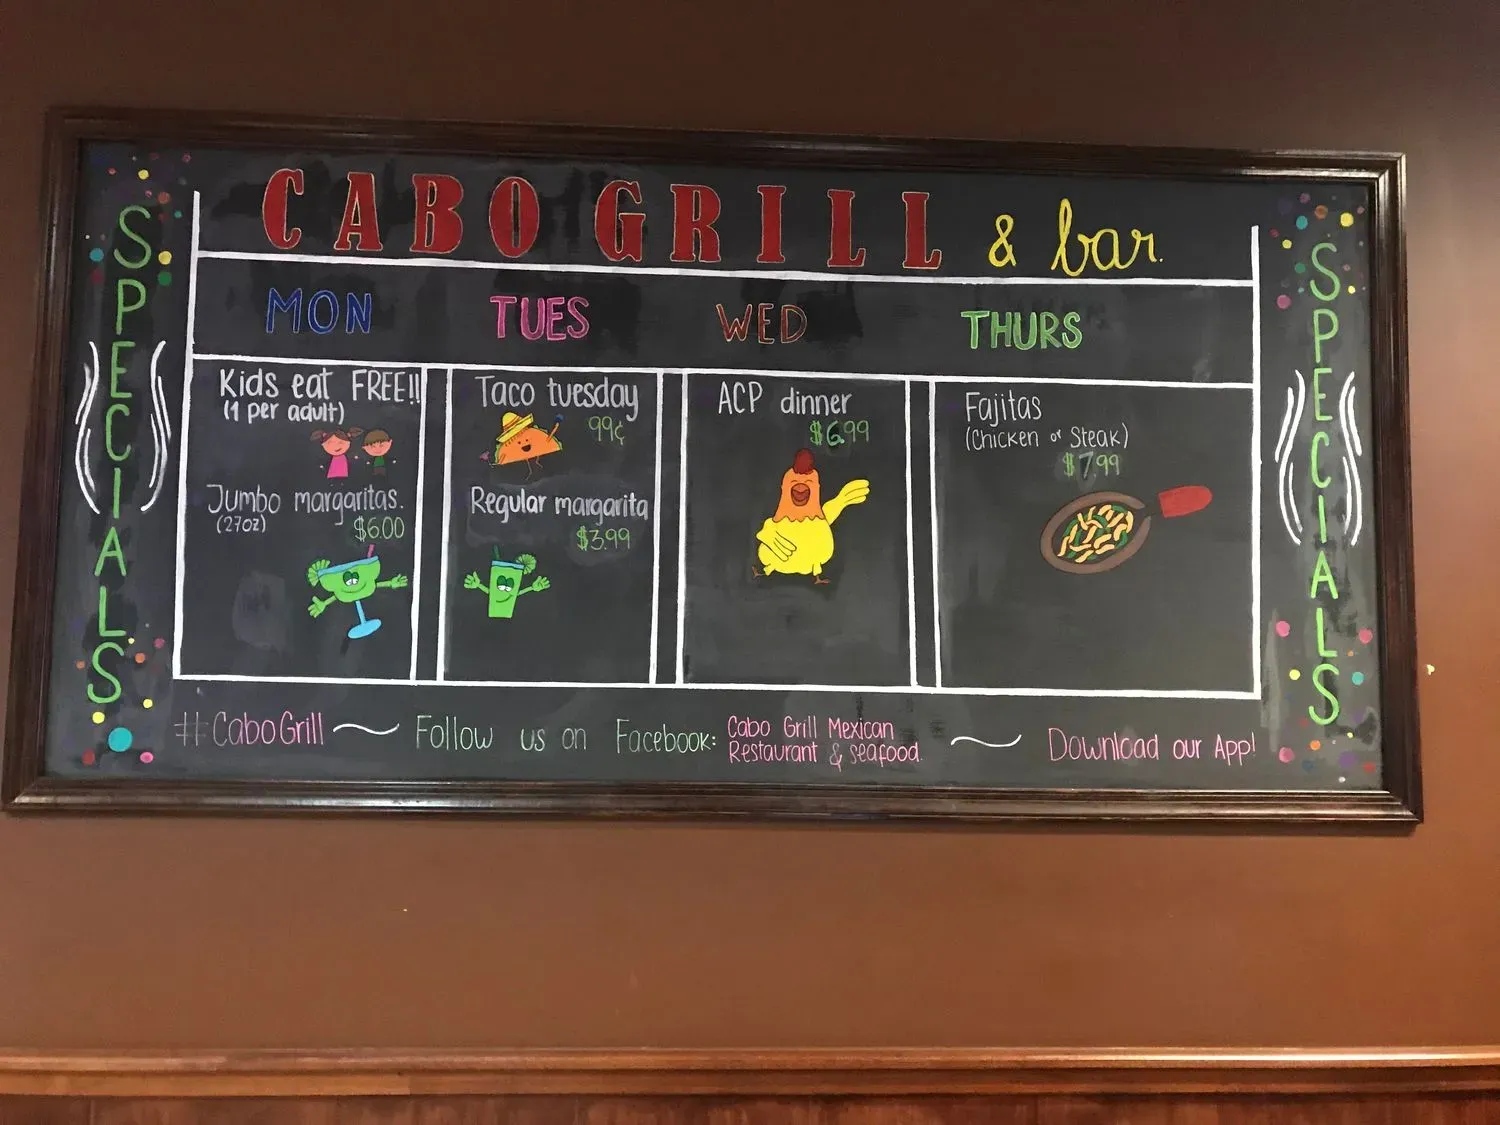 CABO GRILL & bar.
SPECIALS
MON
TUES
WED
THURS
Kids eat FREE!!
(1 per adult)
Jumbo margaritas.
(27oz)
$6.00
Taco tuesday
99¢
Regular margarita
$3.99
ACP dinner
$6.99
Fajitas
(Chicken or Steak)
$7.99
SPECIALS
#CaboGrill
Follow us on Facebook:
Cabo Grill Mexican
Restaurant & seafood.
Download our App!